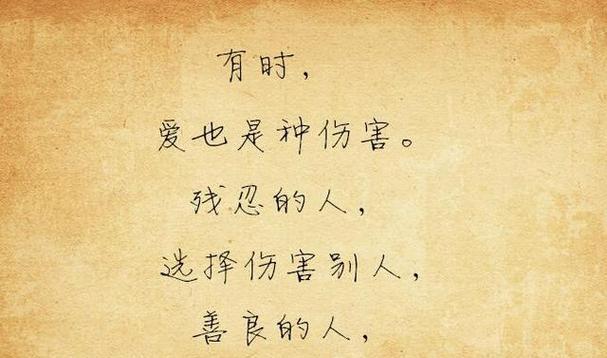 有时，
爱也是种伤害。
残忍的人，
选择伤害别人，
善良的人，